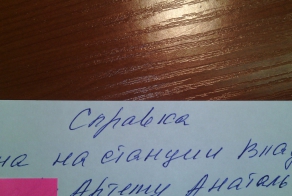 Справка
на на станции Влад
Артему Анатоль